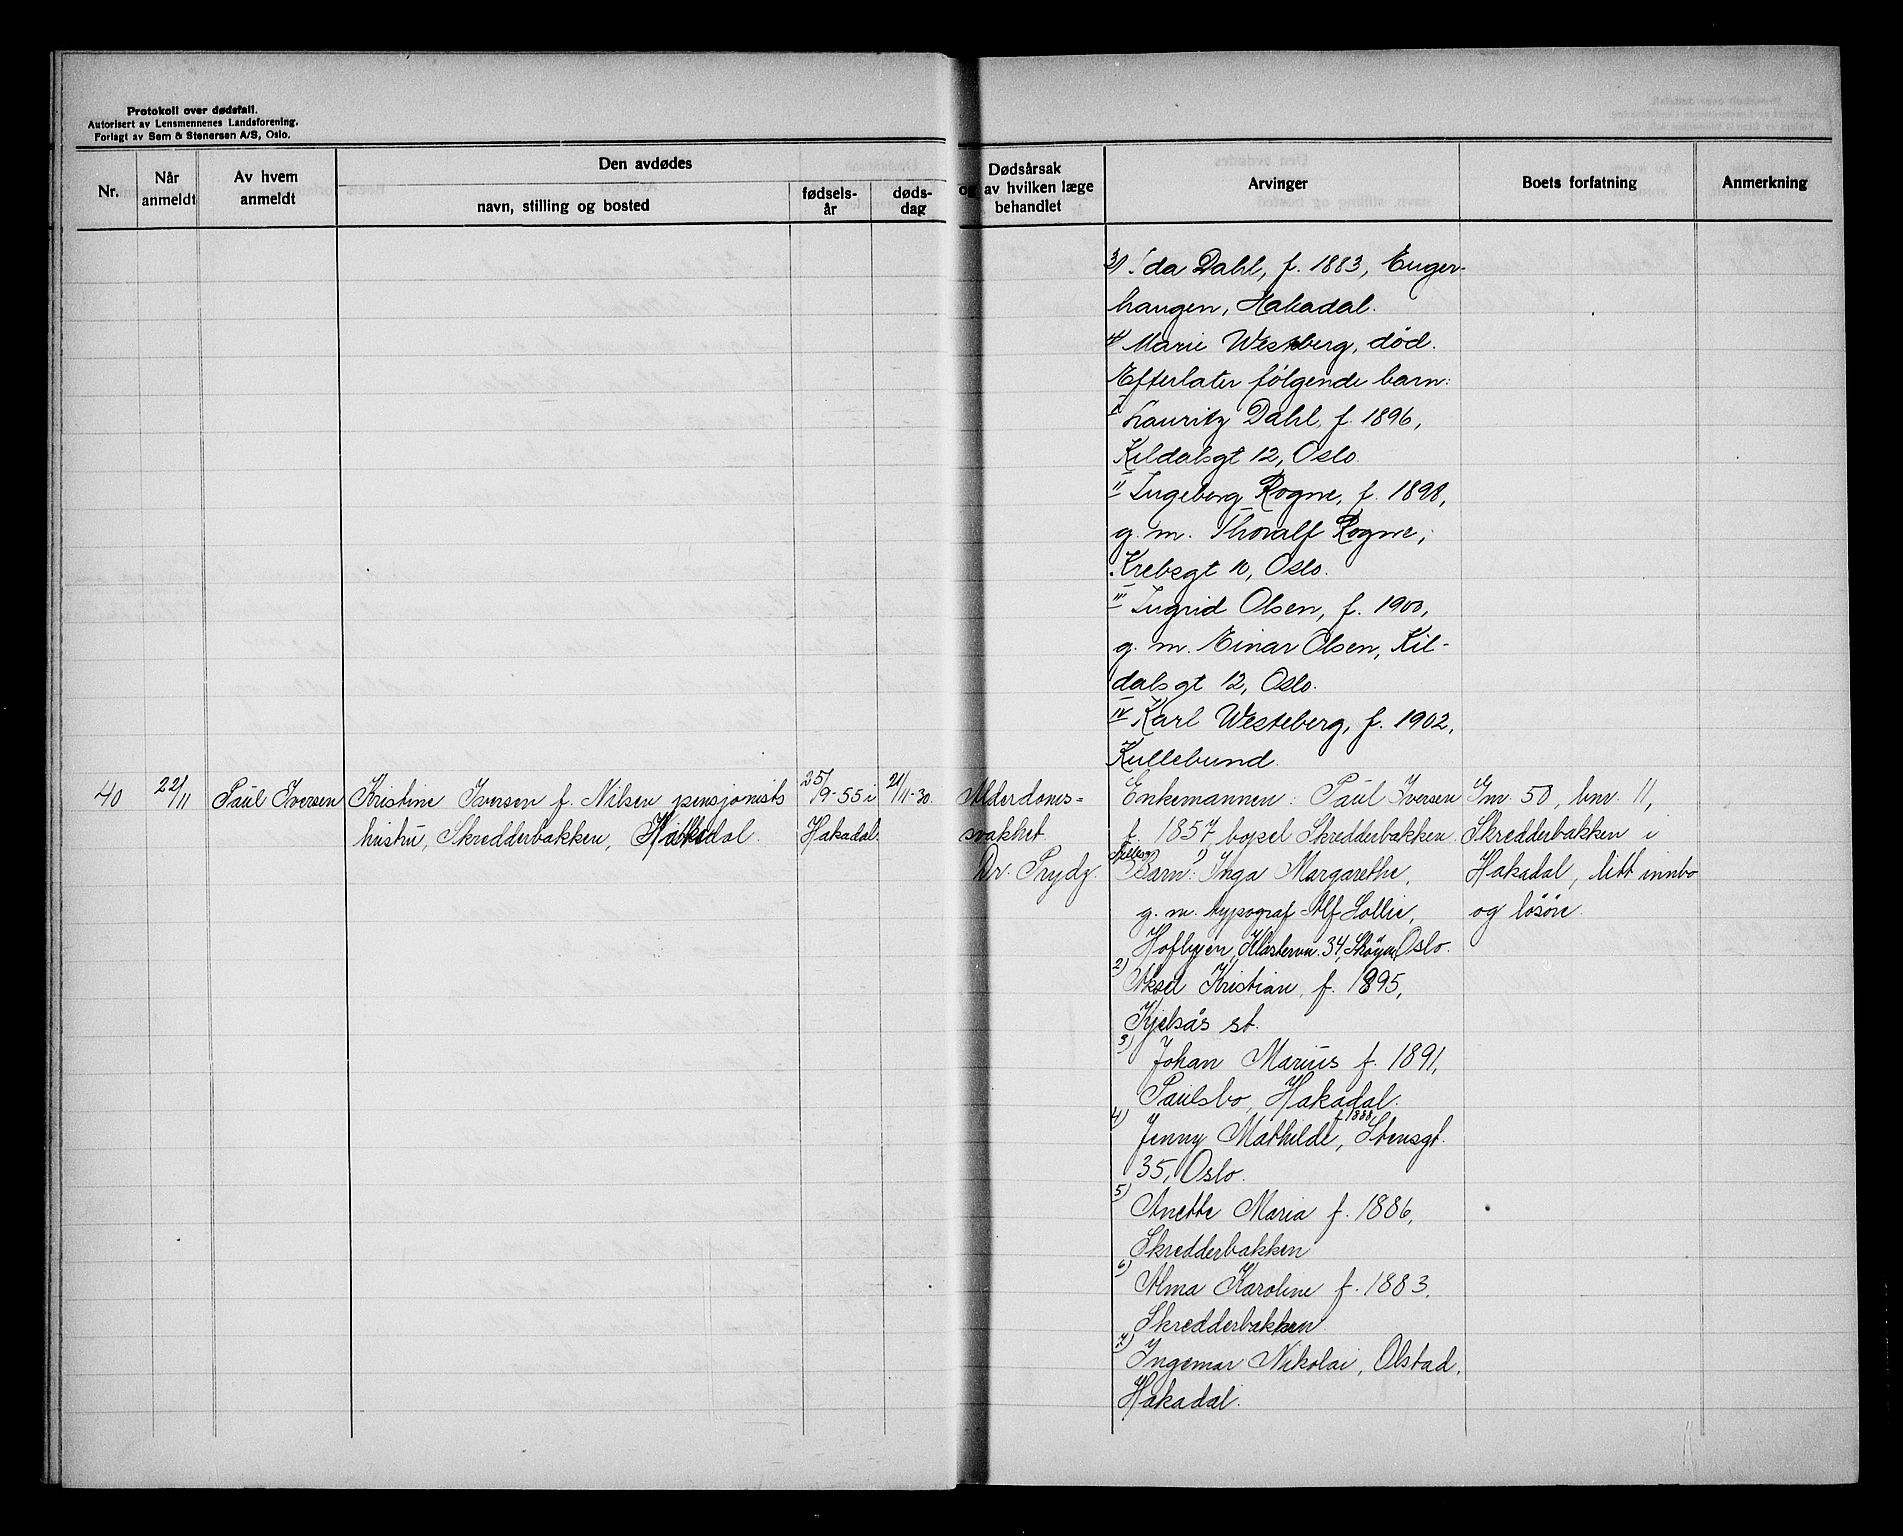 Protokoll over dødsfall.
Autorisert av Lensmennenes Landsforening.
Forlagt av Sem & Stenersen A/S, Oslo.
Nr.
Når
anmeldt
Av hvem
anmeldt
Den avdødes
navn, stilling og bosted
fødsels-
år
døds-
dag
Dødsårsak
og av hvilken læge
behandlet
Arvinger
Boets forfatning
Anmerkning
3) Ida Dahl, f. 1883, Enger-
haugen, Hakadal.
4) Marie Westberg, død.
Efterlater følgende barn:
I Lauritz Dahl, f. 1896,
Kildalsgt 12, Oslo.
II Ingeborg Rogne, f. 1898,
g. m. Thoralf Rogne,
Krebsgt 10, Oslo.
III Ingrid Olsen, f. 1900,
g. m. Einar Olsen, Kil-
dalsgt 12, Oslo.
IV Karl Westeberg, f. 1902,
Kullebund.
40
22/11
Paul Iversen
Kristine Iversen f. Nilsen pensjonists
hustru, Skredderbakken, Hakadal.
25/9-55 i
Hakadal.
21/11-30.
Alderdoms=
svakhet
Dr. Prydz.
Enkemannen: Paul Iversen
f. 1857, bopel Skredderbakken.
Barn: Inga Margarethe,
g. m. typograf Alf Lollie,
Hofbyen, Klostervn. 34, Skøyen, Oslo.
2) Aksel Kristian, f. 1895,
Kjelsås st.
3) Johan Marius f. 1891,
Paulsbo, Hakadal.
4) Jenny Mathilde, f 1888, Stensgt.
35, Oslo.
5) Anette Maria f. 1886,
Skredderbakken
6) Alma Karoline f. 1883.
Skredderbakken
7) Ingemar Nikolai, Olstad,
Hakadal.
Gnr 50, bnr. 11,
Skredderbakken i
Hakadal, litt innbo
og løsøre.